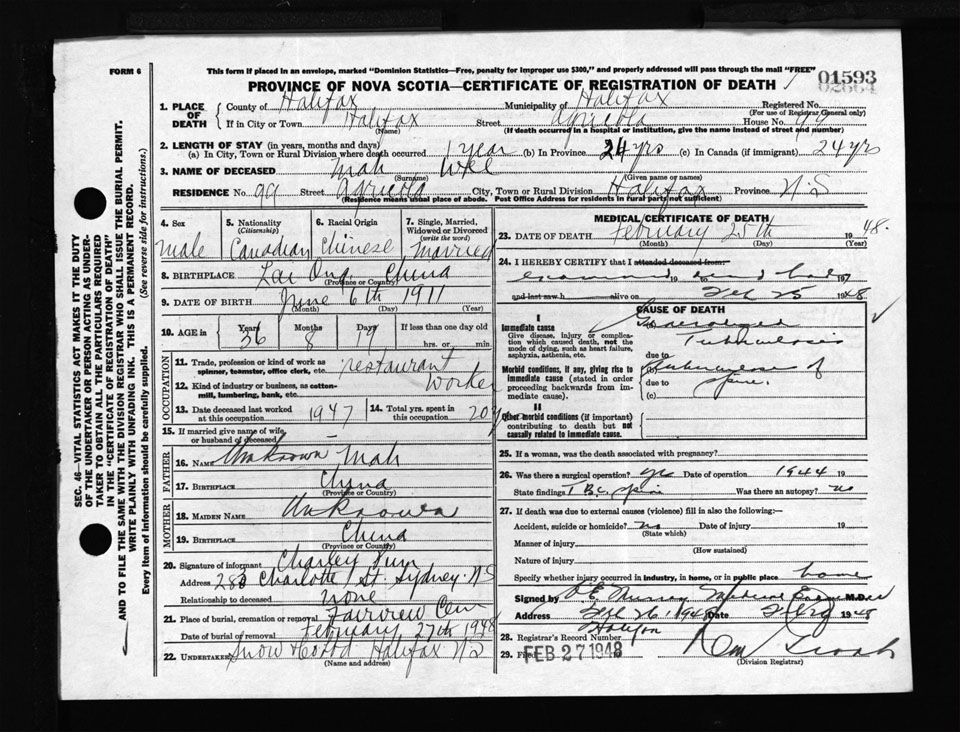 FORM 6
This form if placed in an envelope, marked "Dominion Statistics—Free, penalty for improper use $300," and properly addressed will pass through the mail "FREE"
PROVINCE OF NOVA SCOTIA—CERTIFICATE OF REGISTRATION OF DEATH
01593
02664
1. PLACE OF DEATH
County of Halifax Municipality of Halifax Registered No.
(For use of Registrar General only)
If in City or Town Halifax Street Agricola House No.
(Name)
(If death occurred in a hospital or institution, give the name instead of street and number)
2. LENGTH OF STAY (in years, months and days)
(a) In City, Town or Rural Division where death occurred 1 year (b) In Province 24 yrs (c) In Canada (if immigrant) 24 yrs
3. NAME OF DECEASED Mah Wee
(Surname) (Given name or names)
RESIDENCE No. 99 Street Agricola City, Town or Rural Division Halifax Province N.S
(Residence means usual place of abode. Post Office Address for residents in rural parts not sufficient)
4. Sex Male
5. Nationality (Citizenship) Canadian
6. Racial Origin Chinese
7. Single, Married, Widowed or Divorced (write the word) Married
8. BIRTHPLACE China
(Province or Country)
9. DATE OF BIRTH June 6th 1911
(Month) (Day) (Year)
10. AGE in Years 36 Months 8 Days If less than one day old hrs. or min.
OCCUPATION
11. Trade, profession or kind of work as spinner, teamster, office clerk, etc. restaurant
12. Kind of industry or business, as cotton-mill, lumbering, bank, etc. Worker
13. Date deceased last worked at this occupation 1947
14. Total yrs. spent in this occupation 20
15. If married give name of wife or husband of deceased
FATHER
16. NAME Unknown Mah
17. BIRTHPLACE China
(Province or Country)
MOTHER
18. MAIDEN NAME Unknown
19. BIRTHPLACE China
(Province or Country)
20. Signature of informant Charley
Address Charlotte St. Sydney. N.S
Relationship to deceased none
21. Place of burial, cremation or removal Fairview Cem
Date of burial or removal February 27th 1948
22. Undertaker Snow Halifax N.S
(Name and address)
MEDICAL CERTIFICATE OF DEATH
23. DATE OF DEATH February 25th 1948.
(Month) (Day) (Year)
24. I HEREBY CERTIFY that I attended deceased from:
examined 19 to 19
and last saw h alive on Feb 25 1948
CAUSE OF DEATH
I
Immediate cause
Give disease, injury or complication which caused death, not the mode of dying, such as heart failure, asphyxia, asthenia, etc.
Generalized Tuberculosis
due to
Morbid conditions, if any, giving rise to immediate cause (stated in order proceeding backwards from immediate cause).
Tuberculosis of
due to spine.
(c)
II
Other morbid conditions (if important) contributing to death but not causally related to immediate cause.
25. If a woman, was the death associated with pregnancy?
26. Was there a surgical operation? yes Date of operation 1944 19
State findings T.B. spine Was there an autopsy? no
27. If death was due to external causes (violence) fill in also the following:—
Accident, suicide or homicide? no Date of injury 19
(State which)
Manner of injury
(How sustained)
Nature of injury
Specify whether injury occurred in industry, in home, or in public place home
Signed by Medical Examiner M.D.
Address Halifax Feb 26 1948 Date 1948
28. Registrar's Record Number
29. Filed FEB 27 1948
(Division Registrar)
SEC. 46—VITAL STATISTICS ACT MAKES IT THE DUTY
OF THE UNDERTAKER OR PERSON ACTING AS UNDER-
TAKER TO OBTAIN ALL THE PARTICULARS REQUIRED
IN THE "CERTIFICATE OF REGISTRATION OF DEATH"
AND TO FILE THE SAME WITH THE DIVISION REGISTRAR WHO SHALL ISSUE THE BURIAL PERMIT.
WRITE PLAINLY WITH UNFADING INK. THIS IS A PERMANENT RECORD.
Every item of information should be carefully supplied. (See reverse side for instructions.)